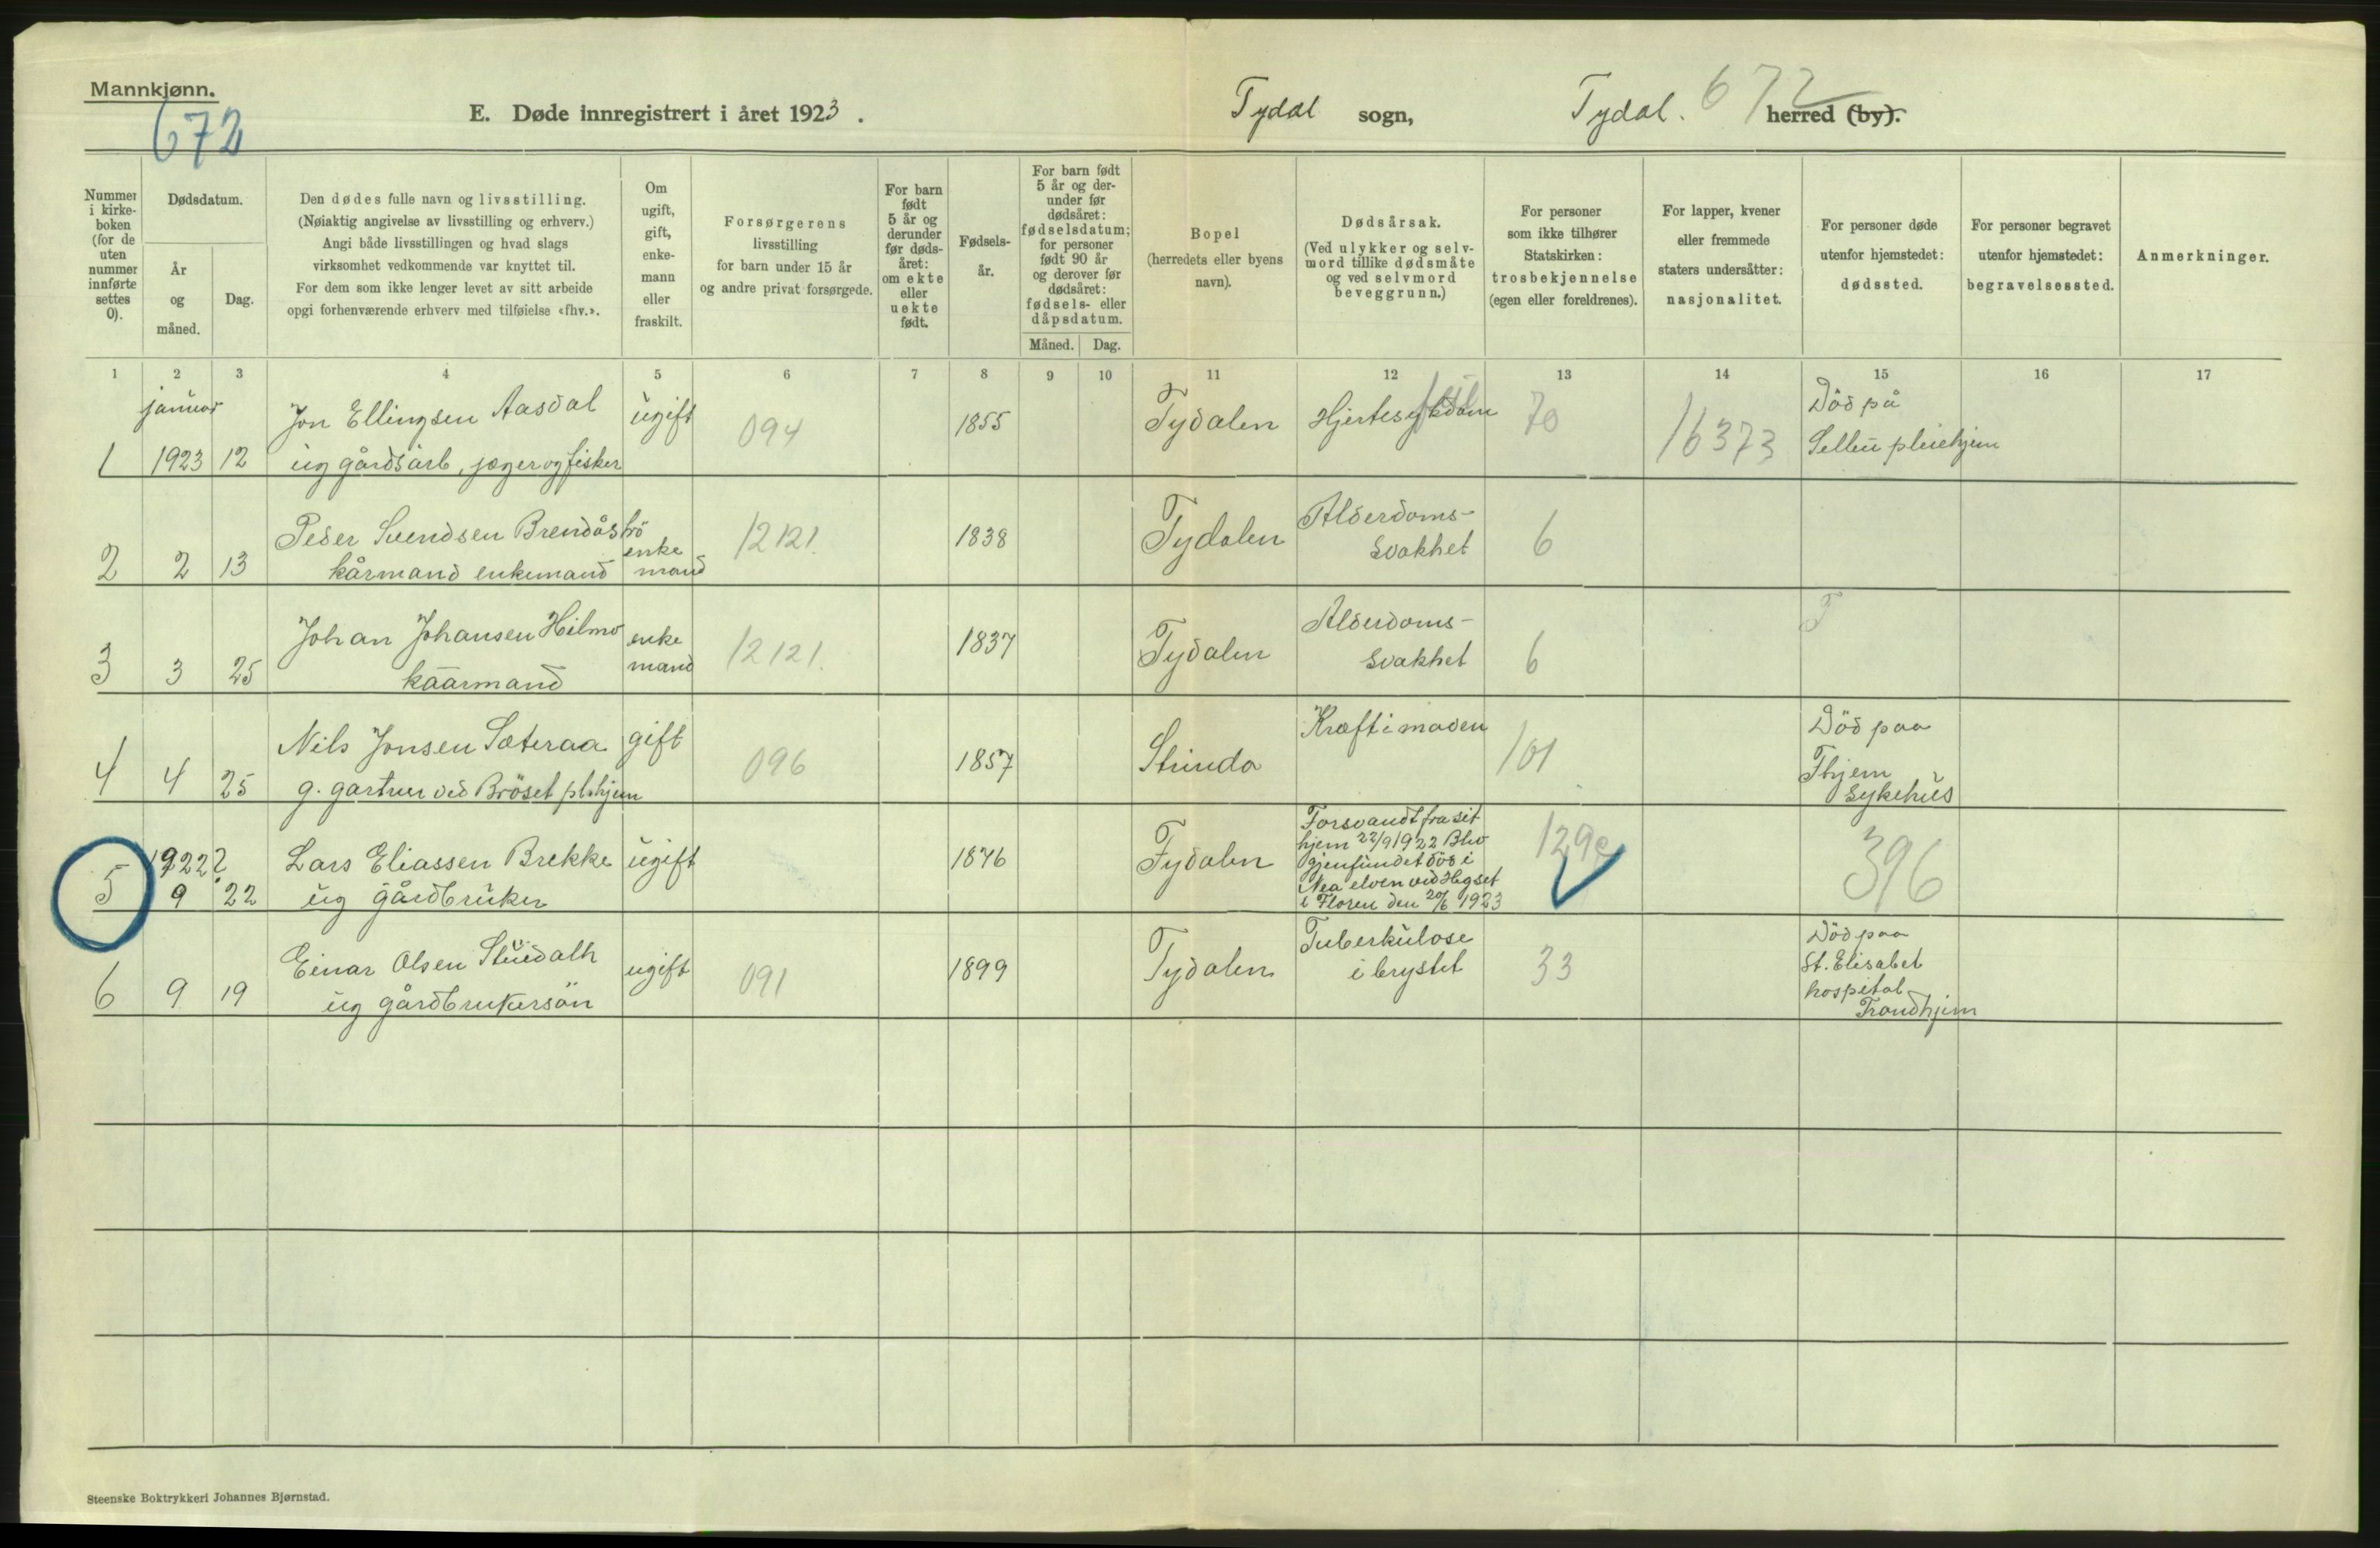 Mannkjønn.
672
E. Døde innregistrert i året 1923.
Tydal sogn,
Tydal. 672 herred (by).
Nummer
i kirke-
boken
(for de
uten
nummer
innførte
settes
0).
Dødsdatum.
År
og
måned.
Dag.
Den dødes fulle navn og livsstilling.
(Nøiaktig angivelse av livsstilling og erhverv.)
Angi både livsstillingen og hvad slags
virksomhet vedkommende var knyttet til.
For dem som ikke lenger levet av sitt arbeide
opgi forhenværende erhverv med tilføielse «fhv.».
Om
ugift,
gift,
enke-
mann
eller
fraskilt.
Forsørgerens
livsstilling
for barn under 15 år
og andre privat forsørgede.
For barn
født
5 år og
derunder
før døds-
året:
om ekte
eller
uekte
født.
Fødsels-
år.
For barn født
5 år og der-
under før
dødsåret:
fødselsdatum;
for personer
født 90 år
og derover før
dødsåret:
fødsels- eller
dåpsdatum.
Måned. Dag.
Bopel
(herredets eller byens
navn).
Dødsårsak.
(Ved ulykker og selv-
mord tillike dødsmåte
og ved selvmord
beveggrunn.)
For personer
som ikke tilhører
Statskirken:
trosbekjennelse
(egen eller foreldrenes).
For lapper, kvener
eller fremmede
staters undersåtter:
nasjonalitet.
For personer døde
utenfor hjemstedet:
dødssted.
For personer begravet
utenfor hjemstedet:
begravelsessted.
Anmerkninger.
1 2 3 4 5 6 7 8 9 10 11 12 13 14 15 16 17
januar
Jon Ellingsen Aasdal ugift 094 1855 Tydalen Hjertesykdom 70 16373 Död på
1 1923 12 ug gårdsarb, jæger og fisker pleiehjem
Peder Svendsen Brendås enke 12121. 1838 Tydalen Alderdoms-
2 2 13 kårmand enkemand mand svakhet 6
Johan Johansen Hilmo enke 12121. 1837 Tydalen Alderdoms- T
3 3 25 kaarmand mand svakhet 6
Nils Jonsen Sæteraa gift 096 1857 Strinda Kræft i maven 101 Död paa
4 4 25 g. gartner ved Bröset pl.hjem Thjem
sykehus
1922? Lars Eliassen Brekke ugift 1876 Tydalen Forsvandt fra sit
hjem 22/9 1922 Blev 129e
gjenfundet död i 396
5 9 22 ug gårdbruker Nea elven ved Hegset
i Floren den 20/6 1923
Einar Olsen Stuedalh ugift 091 1899 Tydalen Tuberkulose 33 Död paa
6 9 19 ug gårdbrukersön i brystet St. Elisabet
hospital
Trondhjem
Steenske Boktrykkeri Johannes Bjørnstad.